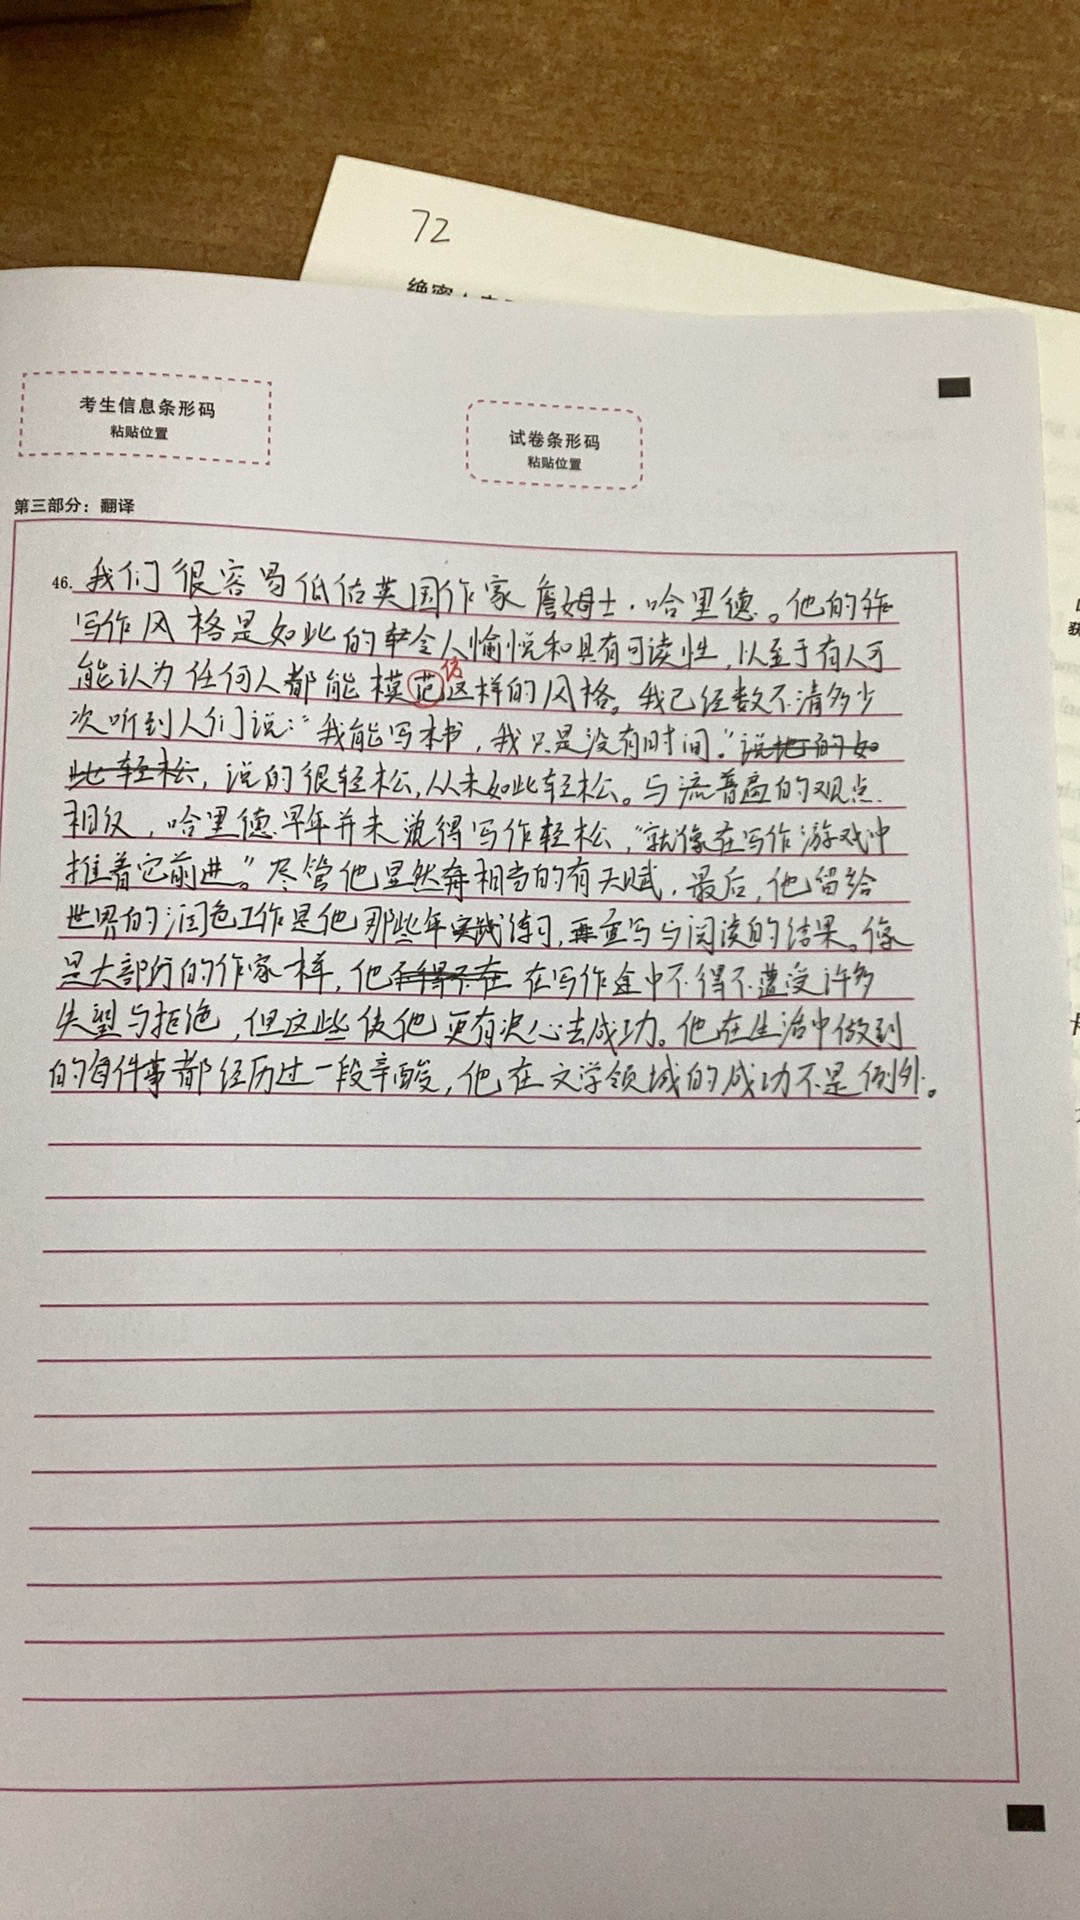 72
绝密
考生信息条形码
粘贴位置
试卷条形码
粘贴位置
第三部分：翻译
46. 我们很容易低估英国作家詹姆士·哈里德。他的
写作风格是如此的令人愉悦和具有可读性，以至于有人可
能认为任何人都能模范仿这样的风格。我已经数不清多少
次听到人们说："我能写本书，我只是没有时间。"说地的如
此轻松，说的很轻松，从未如此轻松。与流普遍的观点
相反，哈里德早年并未觉得写作轻松，"就像在写作游戏中
推着它前进。"尽管他显然有相当的有天赋，最后，他留给
世界的润色工作是他那些年实践练习，重写与阅读的结果。像
是大部分的作家一样，他不得不在在写作途中不得不遭受许多
失望与拒绝，但这些使他更有决心去成功。他在生活中做到
的每件事都经历过一段辛酸，他在文学领域的成功不是例外。